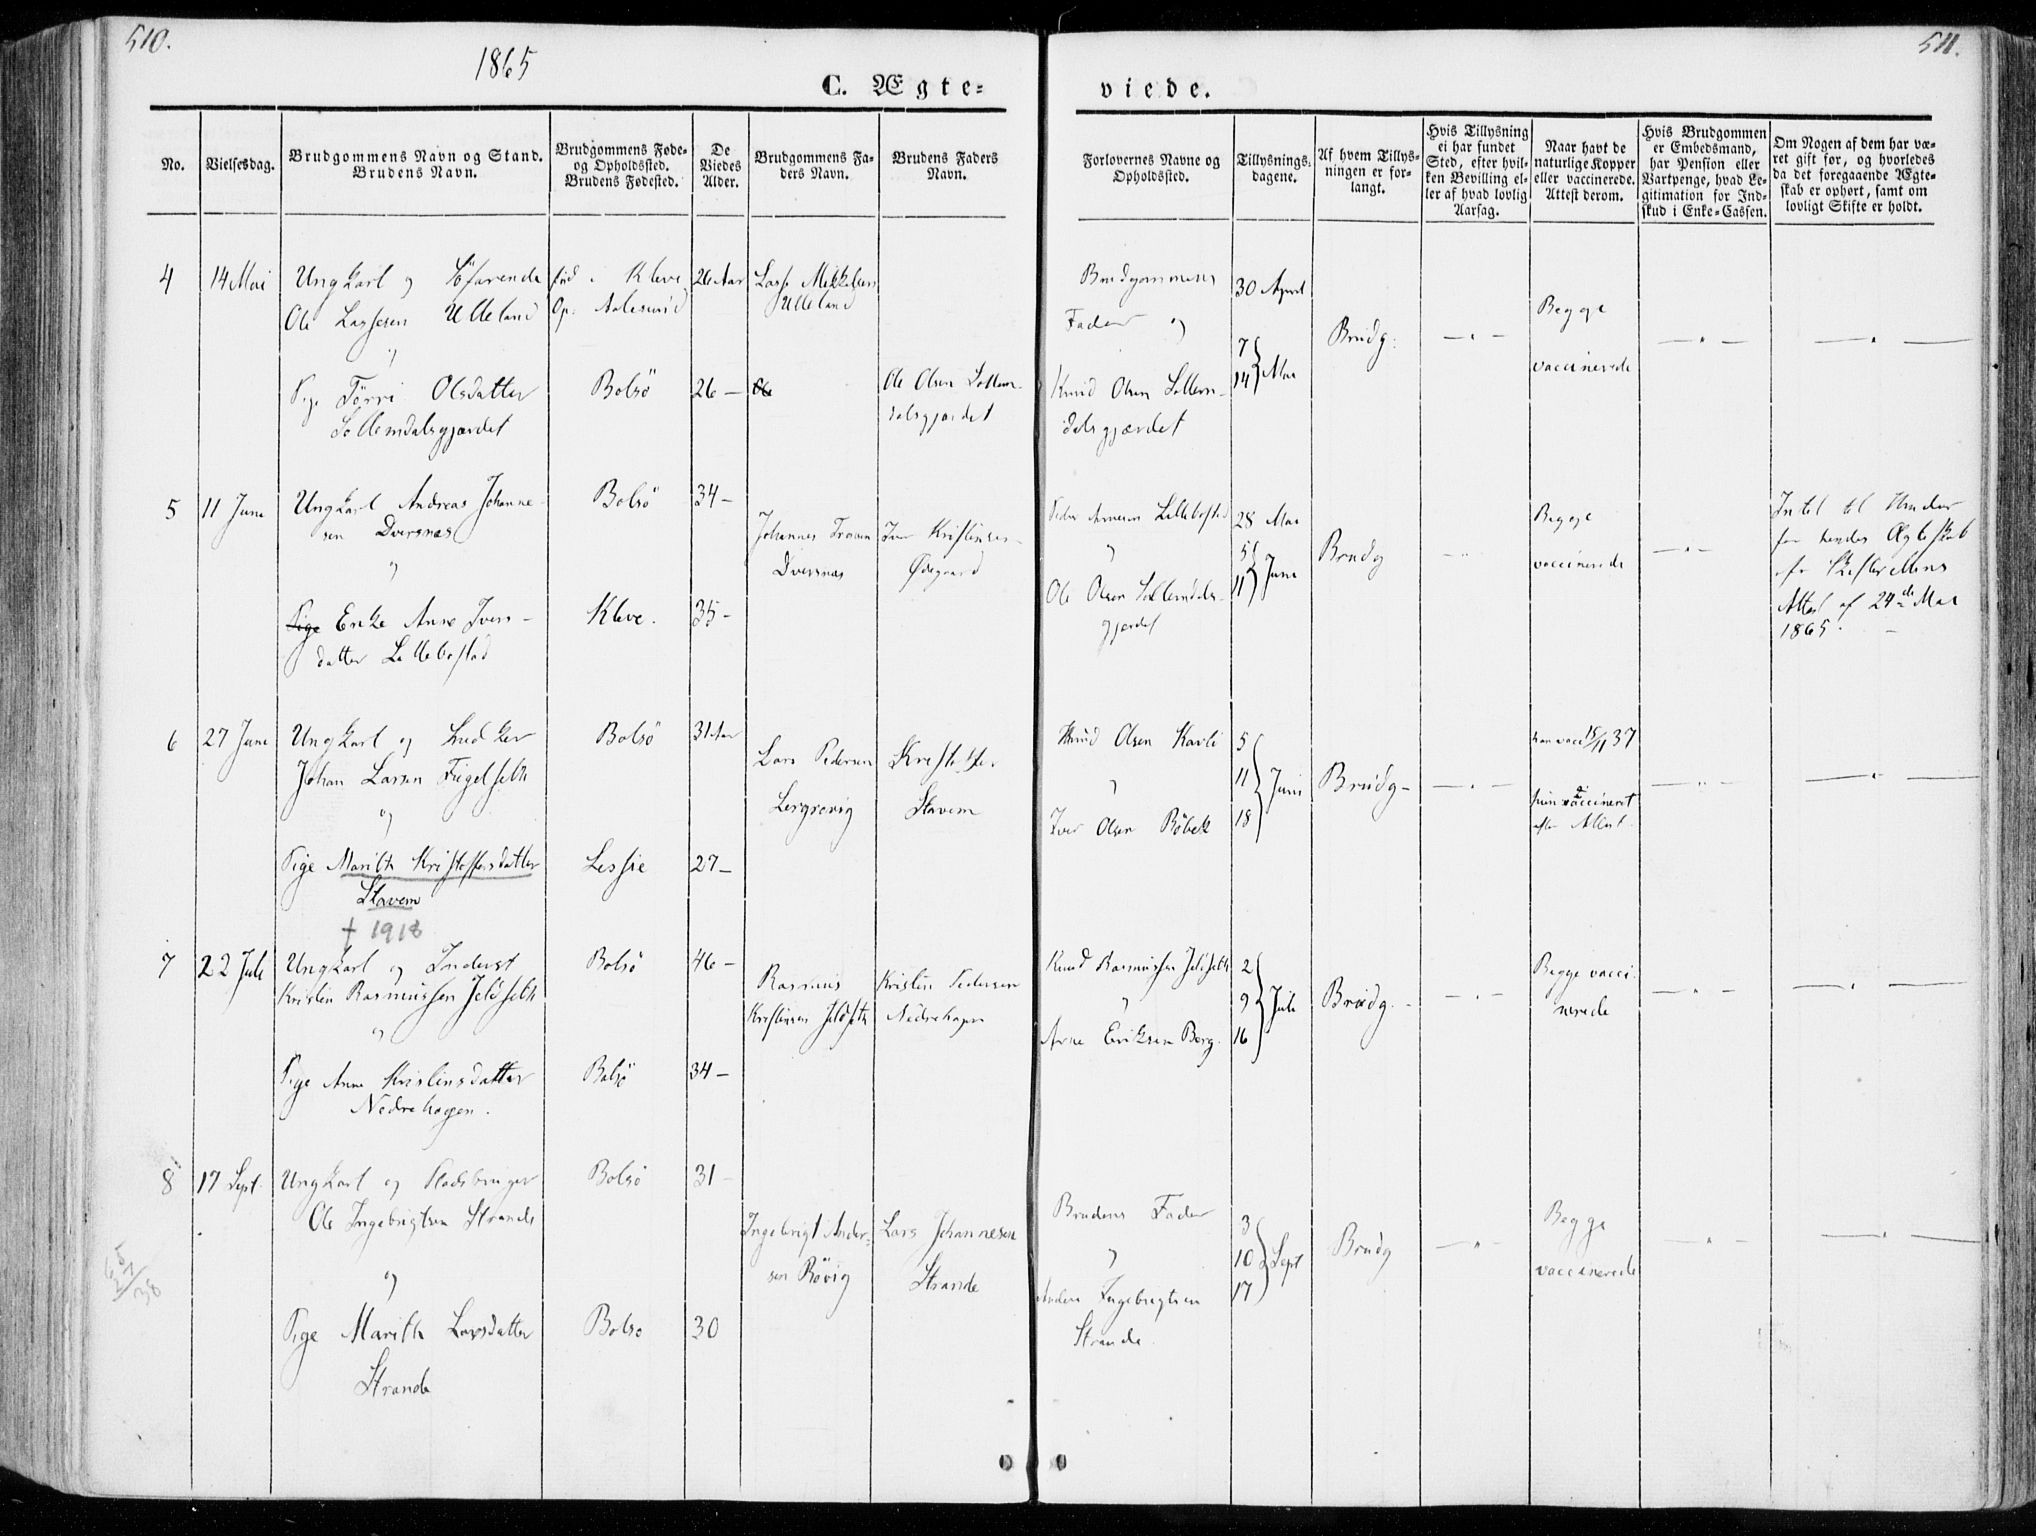 510.
511.
1865
C. Ægte=
viede.
No.
Vielsesdag.
Brudgommens Navn og Stand.
Brudens Navn.
Brudgommens Føde-
og Opholdssted.
Brudens Fødested.
De
Viedes
Alder.
Brudgommens Fa-
ders Navn.
Brudens Faders
Navn.
Forlovernes Navne og
Opholdssted.
Tillysnings-
dagene.
Af hvem Tillys-
ningen er for-
langt.
Hvis Tillysning
ei har fundet
Sted, efter hvil-
ken Bevilling el-
ler af hvad lovlig
Aarsag.
Naar havt de
naturlige Kopper
eller vaccinerede.
Attest derom.
Hvis Brudgommen
er Embedsmand,
har Pension eller
Vartpenge, hvad Le-
gitimation for Ind-
skud i Enke-Cassen.
Om Nogen af dem har væ-
ret gift før, og hvorledes
da det foregaaende Ægte-
skab er ophørt, samt om
lovligt Skifte er holdt.
4
14 Mai
Ungkarl og Søfarende
Ole Lassesen Ulleland
og
Pige Törri Olsdatter
Sollemdalsgjærdet
fød i Kleve
Op: Aalesund
Bolsö
26 Aar
26 —
Lasse Mikkelsen
Ulleland
Ole
Ole Olsen Sollem-
dalsgjærdet
Brudgommens
Fader og
Knud Olsen Sollem-
dalsgjærdet
30 April
7
14 Mai
Brudg:
Begge
vaccinerede
5
11 Juni
Ungkarl Andreas Johanne-
sen Dversnæs
og
Pige Enke Anne Ivers-
datter Lillebostad
Bolsö
Kleve.
34 —
35 —
Johannes
Dversnæs
Iver Kristensen
Ødegaard
Peder Lillebostad
"
Ole Olsen
gjærdet
28 Mai
5
11 Juni
Brudg
Begge
vaccinerede
Intet til Hinder
for hendes Ægteskab
Attest af 24de Mai
1865.
6
27 Juni
Ungkarl og
Johan Larsen Fugelseth
og
Pige Marith Kristoffersdatter
Stavem
† 1918
Bolsö
Lessie
31 Aar
27 —
Lars Pedersen
Lergrovig
Kristoffer
Stavem
Knud Olsen Kavli
"
Iver Olsen Böbek
5
11
18
Juni
Brudg —
han vacc 15/11 37
hun vaccineret
efter Attest.
7
22 Juli
Ungkarl og Inderst
Kristen Rasmussen Jeldseth
og
Pige Anne Kristensdatter
Nedrehagen.
Bolsö
Bolsö
46 —
34 —
Rasmus
Kristensen Jeldseth
Kristen Pedersen
Nedrehagen
Knud Rasmussen Jeldseth
"
Arne Eriksen Berg.
2
9
16
Juli
Brudg.
Begge vacci-
nerede
8
17 Sept.
Ungkarl og Pladsbruger
Ole Ingebrigtsen Strande
og
Pige Marith Larsdatter
Strande
Bolsö
Bolsö
31 —
30
Ingebrigt Ander-
sen Røvig
Lars Johannesen
Strande
Brudens Fader
"
Anders Ingebrigtsen
Strande.
3
10
17
Sept
Brudg
Begge
vaccinerede